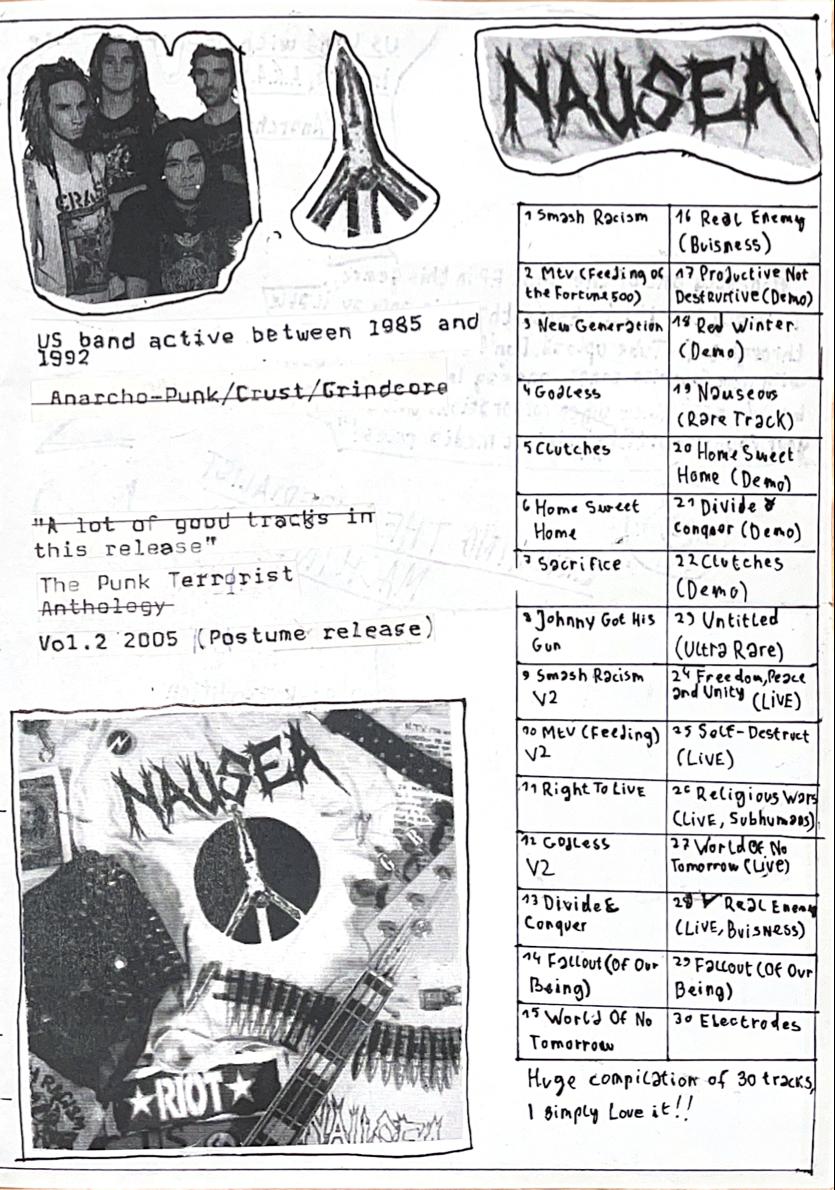 NAUSEA
CRASS
US band active between 1985 and
1992
Anarcho-Punk/Crust/Grindcore
"A lot of good tracks in
this release"
The Punk Terrorist
Anthology
Vol.2 2005 (Postume release)
NAUSEA
★RIOT★
1 Smash Racism
2 Mtv (Feeling Of
the Fortune 500)
3 New Generation
4 Godless
5 Clutches
6 Home Sweet
Home
7 Sacrifice
8 Johnny Got His
Gun
9 Smash Racism
V2
10 Mtv (Feeding)
V2
11 Right To Live
12 Godless
V2
13 Divide &
Conquer
14 Fallout (Of Our
Being)
15 World Of No
Tomorrow
16 Real Enemy
(Buisness)
17 Productive Not
Destructive (Demo)
18 Red Winter
(Demo)
19 Nauseous
(Rare Track)
20 Home Sweet
Home (Demo)
21 Divide &
Conquer (Demo)
22 Clutches
(Demo)
23 Untitled
(Ultra Rare)
24 Freedom, Peace
and Unity (Live)
25 Self-Destruct
(Live)
26 Religious Wars
(Live, Subhumans)
27 World Of No
Tomorrow (Live)
28 Real Enemy
(Live, Buisness)
29 Fallout (Of Our
Being)
30 Electrodes
Huge compilation of 30 tracks,
I simply Love it!!